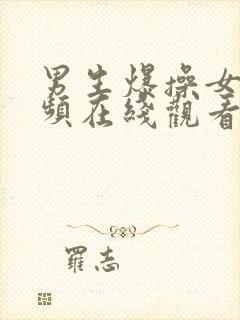 男生爆操女
頻在綫觀看
羅志